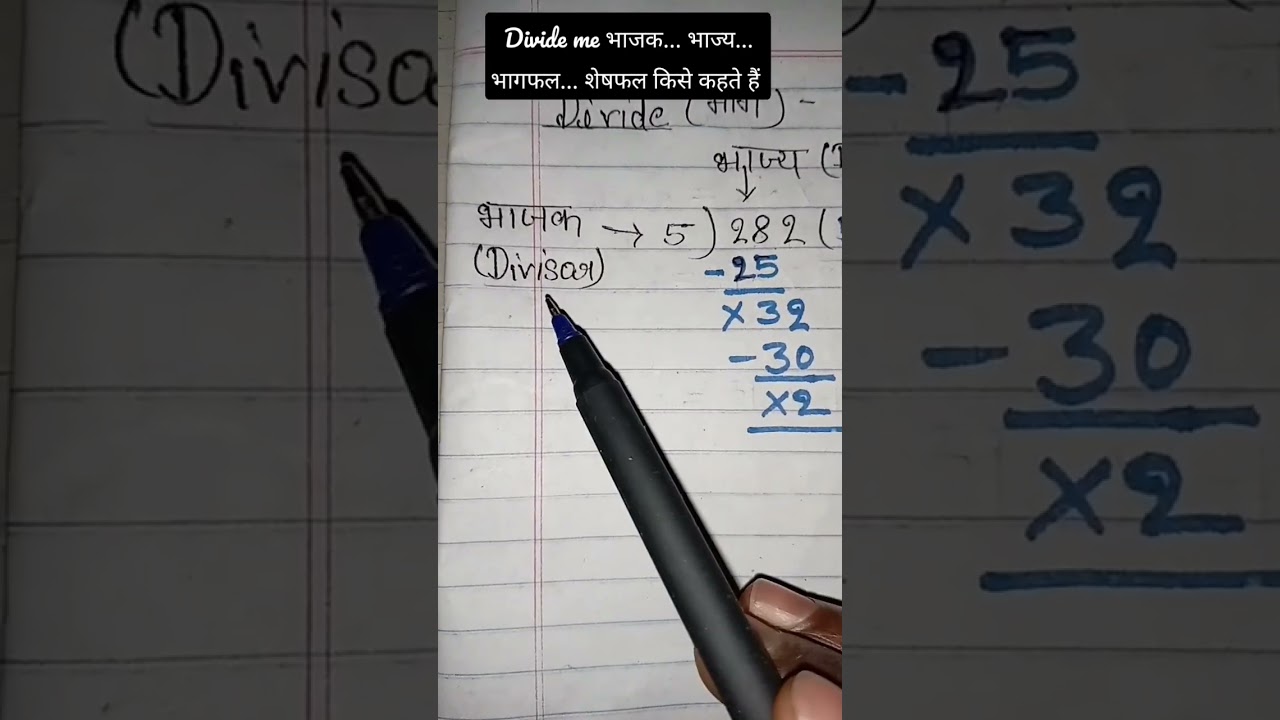 Divide me भाजक... भाज्य...
भागफल... शेषफल किसे कहते हैं
Divide (भाग) -
भाज्य (
भाजक → 5 ) 282 (
(Divisar)
- 25
x 32
- 30
x 2
(Divisa
- 25
x 32
- 30
x 2